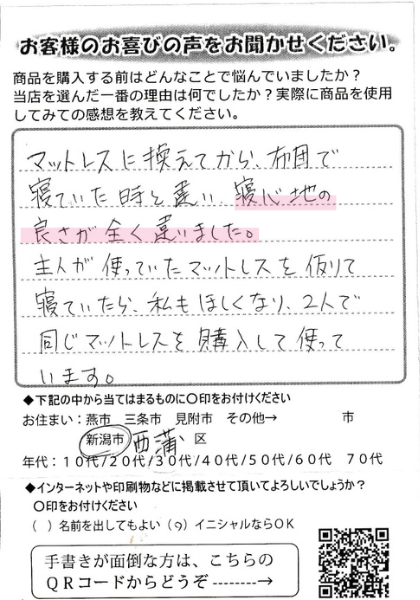 お客様のお喜びの声をお聞かせください。
商品を購入する前はどんなことで悩んでいましたか？
当店を選んだ一番の理由は何でしたか？実際に商品を使用
してみての感想を教えてください。
マットレスに換えてから、布団で
寝ていた時と違い、寝心地の
良さが全く違いました。
主人が使っていたマットレスを仮りて
寝ていたら、私もほしくなり、2人で
同じマットレスを購入して使って
います。
◆下記の中から当てはまるものに〇印をお付けください
お住まい：燕市　三条市　見附市　その他→　　　　市
新潟市 西蒲 区
年代：10代/20代/30代/40代/50代/60代　70代
◆インターネットや印刷物などに掲載させて頂いてよろしいでしょうか？
〇印をお付けください
（　）名前を出してもよい（○）イニシャルならOK
手書きが面倒な方は、こちらの
QRコードからどうぞ--------→